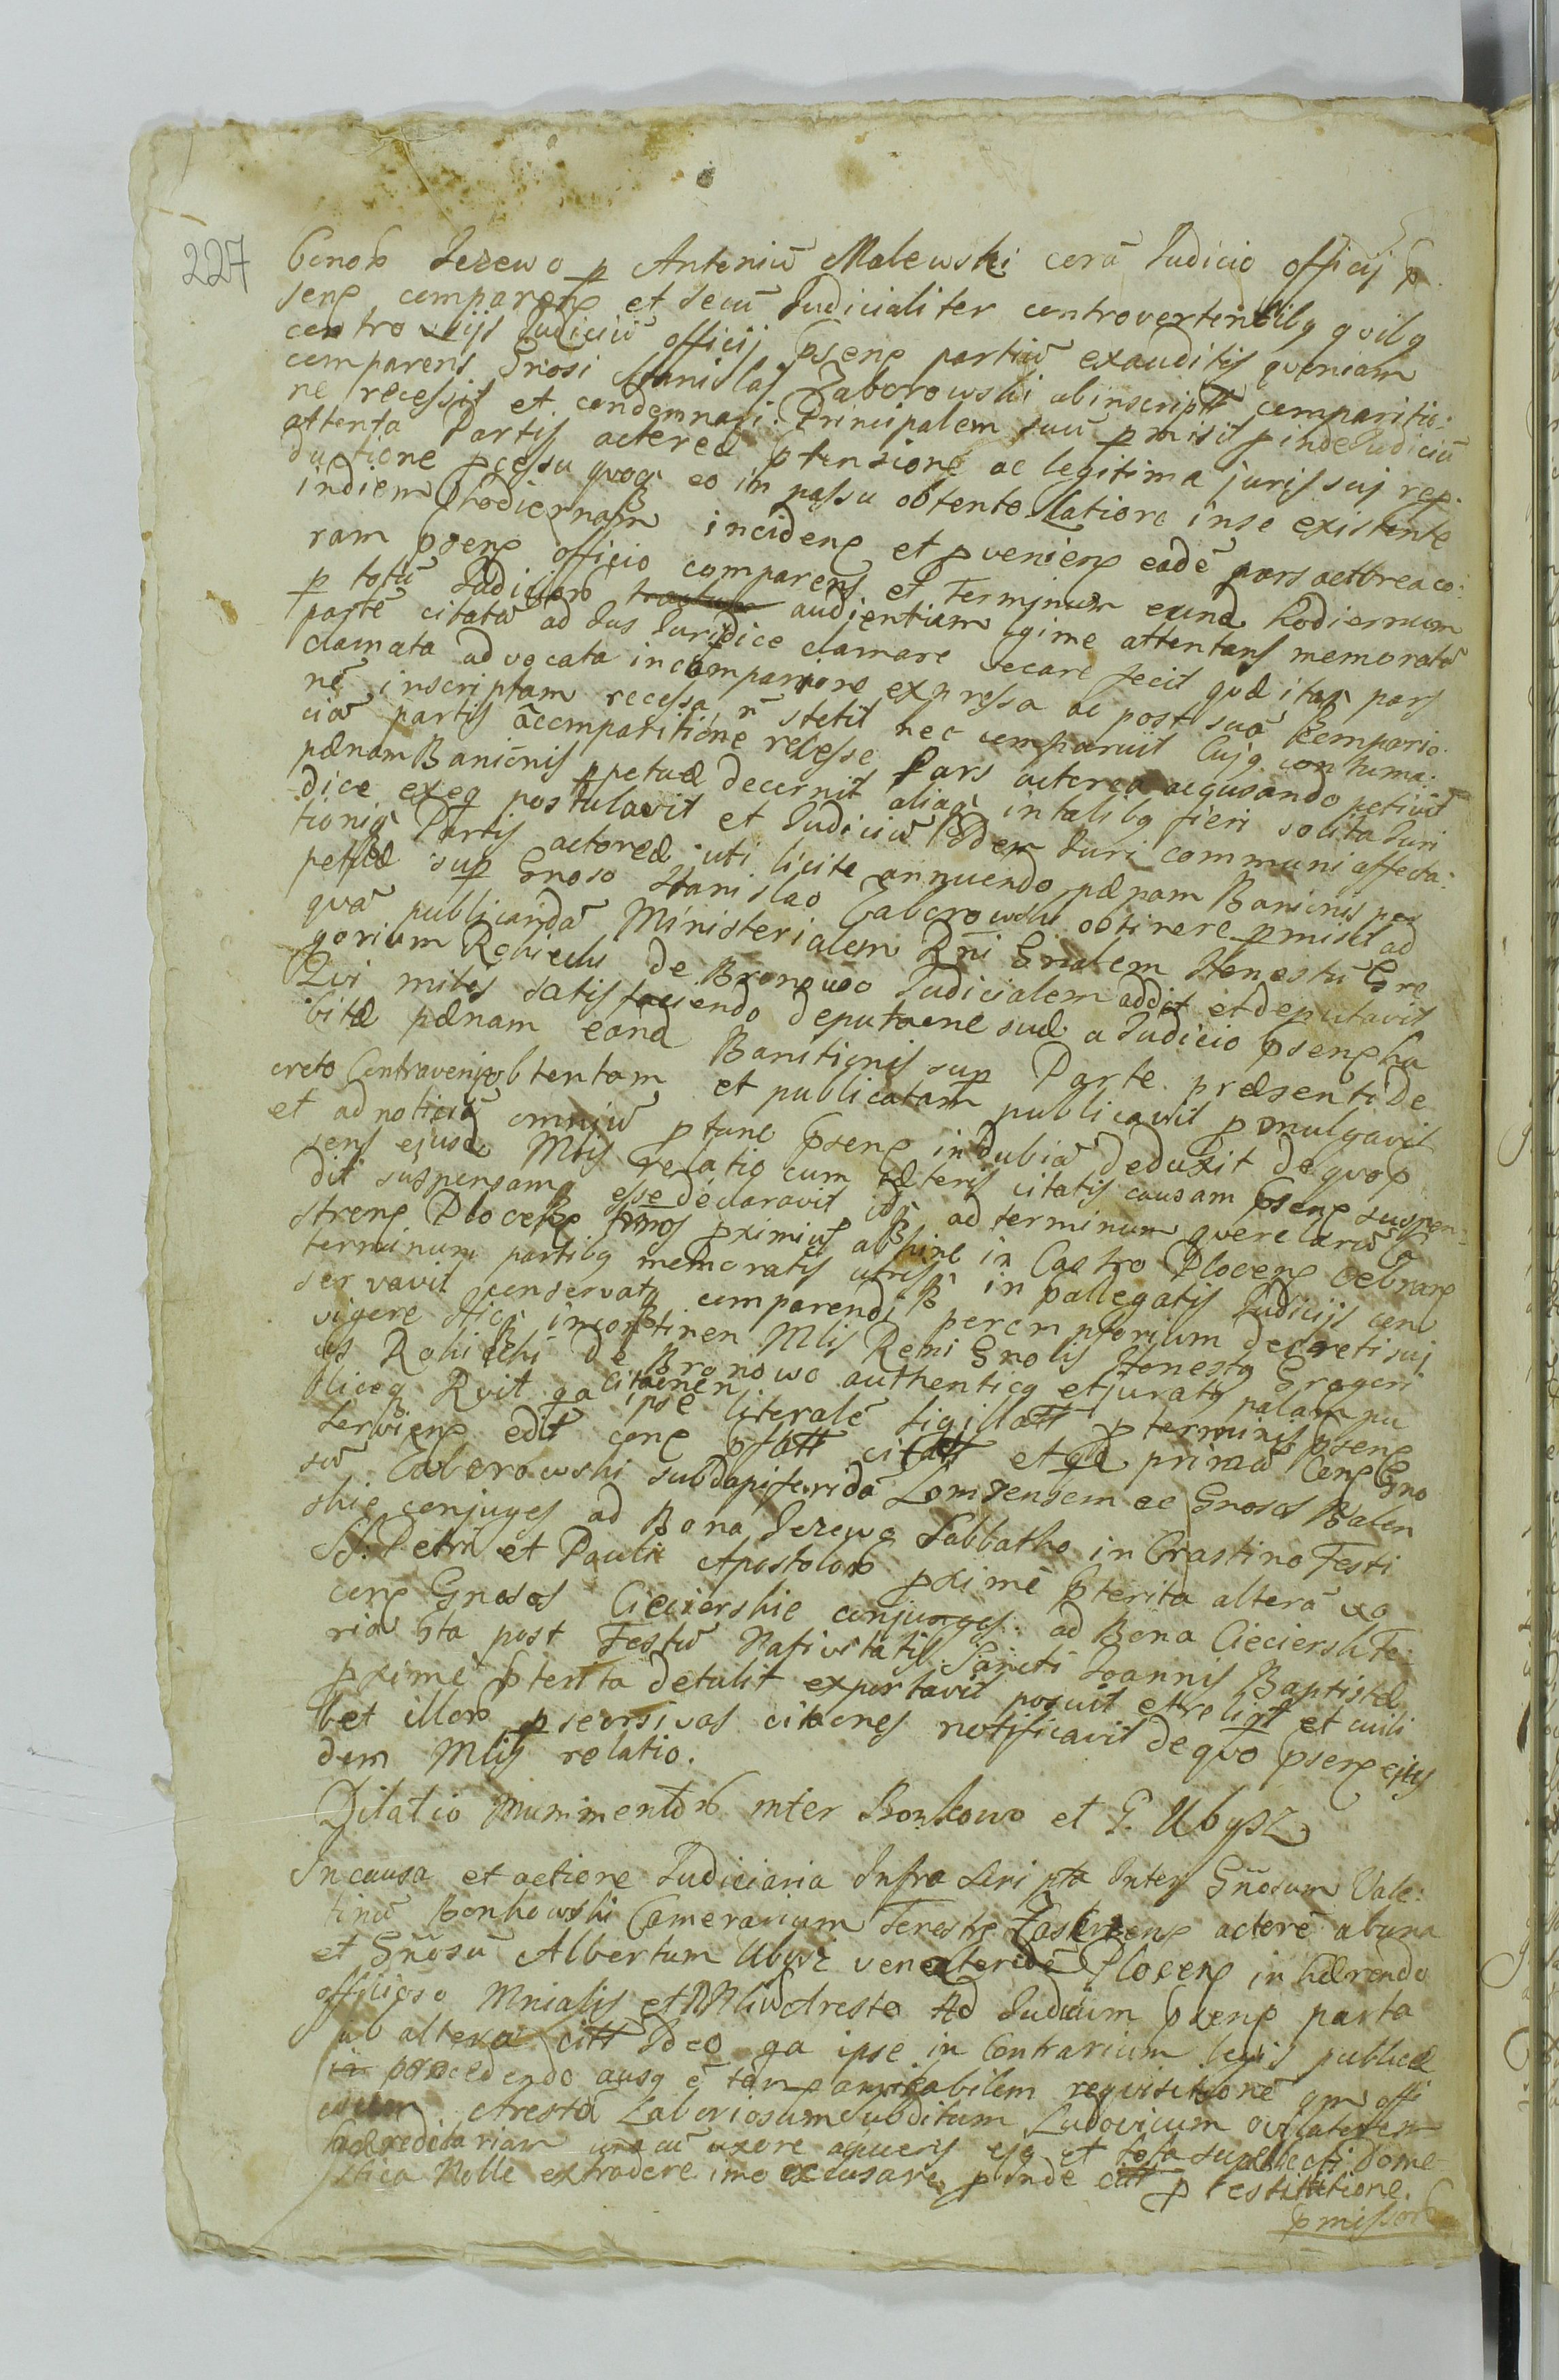 227
bonor Jezewo p Antoniū Malewski corā Judicio officij p
senꝭ comparenꝭ et secū Judicialiter controvertentibꝗ qvibꝗ
controversijs Judiciū officij psenꝭ partiū exauditis qvoniam
comparens Gnosi Stanislai Zaborowski ab inscriptt comparitio:
ne recessit et condemnari Principalem suū pmisit pinde Judiciū
attenta Partis actoreæ ptensione ac legitima juris sui rep:
ductione pcessu qvoqꝫ eo in passu obtento latiore in se existente
in diem hodiernam incidenꝭ et pvenienꝭ eadē pars actorea co:
ram psenꝭ officio comparens et Terminum eund hodiernum
p totū Judicior audientiam legime attentans memoratā
partē citatā ad Jus Juridice clamare vocare fecit qvæ itaqꝫ pars
clamata advocata in comparitione expressa ac post suā comparitio
nē inscriptam recessa, ñ stetit nec comparuit Cujꝗ contuma:
ciā partis ac comparitione recesse Pars actorea accusando petivit
pænam Banionis ppetuæ decernit aliaqꝫ in talibꝗ fieri solita Juri
dice exeq postulavit et Judiciū Idem Juri communi affecta:
tioniqꝫ Partis actoreæ uti licite annuendo pænam Banionis per
petuæ sup Gnoso Stanislao Zaborowski obtinere pmisit ad
qvā publicandā Ministerialem Rni Gnalem Honestū Gre
gorium Rohicki de Bronowo Judicialem addit et deputavit
Qvi mites satisfaciendo deputaone suæ a Judicio psenꝭ ha
bitæ pænam eand Banitionis sup Parte præsenti De
creto Contraveni obtentam et publicatam publicavit pmulgavit
et ad noticiā omniū ptunc psenꝭ indubiā deduxit de qvo p
sens ejusd Mlis relatio cum cæteris citatis causam psenꝭ suspen
dit suspensamqꝫ esse declaravit idqꝫ ad terminum qverelarū
strenꝭ Plocenꝭ tmos pximius abhinc in Castro Plocenꝭ celbranꝭ
terminum partibꝗ memoratis utrisqꝫ in pallegatis Judicijs con
servavit conservatꝗ comparendi peremptorium decreti sui
vigore Hicqꝫ incontinen Mlis Reni Gnolis Honestꝗ Gregori
us Rohicki de Bronowo authenticꝗ et juratꝗ palam pu
bliceqꝫ Rvit qa citaonen ipse literalē sigillatt p terminis psenꝭ
servienꝭ edit conꝭ psatt citatt et qd primā conꝭ Gno
sū Zaborowski subdapiferidā Lomzensem ac Gnosos Balin
skie conjuges ad Bona Jezewo Sabbatho in Crastino Festi
SS. Petri et Pauli Apostolor pxime pterita alterā vo
conꝭ Gnosos Ciecierskie conjuges ad Bona Ciecierski Fe:
riā 5ta post Festū Nativitatis Sancti Joannis Baptistæ
pxime pterita detulit exportavit posuit et reliqt et cuili
bet illor pseorsivas citaones notificavit de qvo psenꝭ ejus
dem Mlis relatio.
Dilatio Munimentor inter Bonkowo et G. Ubysz
In causa et actione Judiciaria Infra scripta Inter Gñosum Vale:
tinū Bonkowski Camerarium Terestre Zaskrzenꝭ actorē ab una
et Gñosū Albertum Ubysz venatoridē Plocenꝭ inhærendo
officioso Mnialis et Mliū Aresto Ad Judicium psenꝭ parta
ab altera citt Ideo qa ipse in Contrarium legis publicæ
procedendo ausꝗ ē tam amicabilem reqvisitionē qm offi
cium Arestā Laboriosum Subditum Ludovicum ovilatorem
hæreditariam una cū uxore ac pueris ejꝗ et tota supellecti Dome
stica Nolle extradere imo excusare pinde citt p restitutione.
pmissor